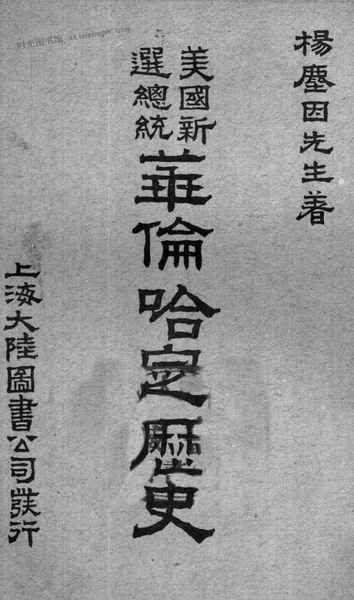 楊塵因先生著
美國新
選總統
華倫哈定歷史
上海大陸圖書公司發行